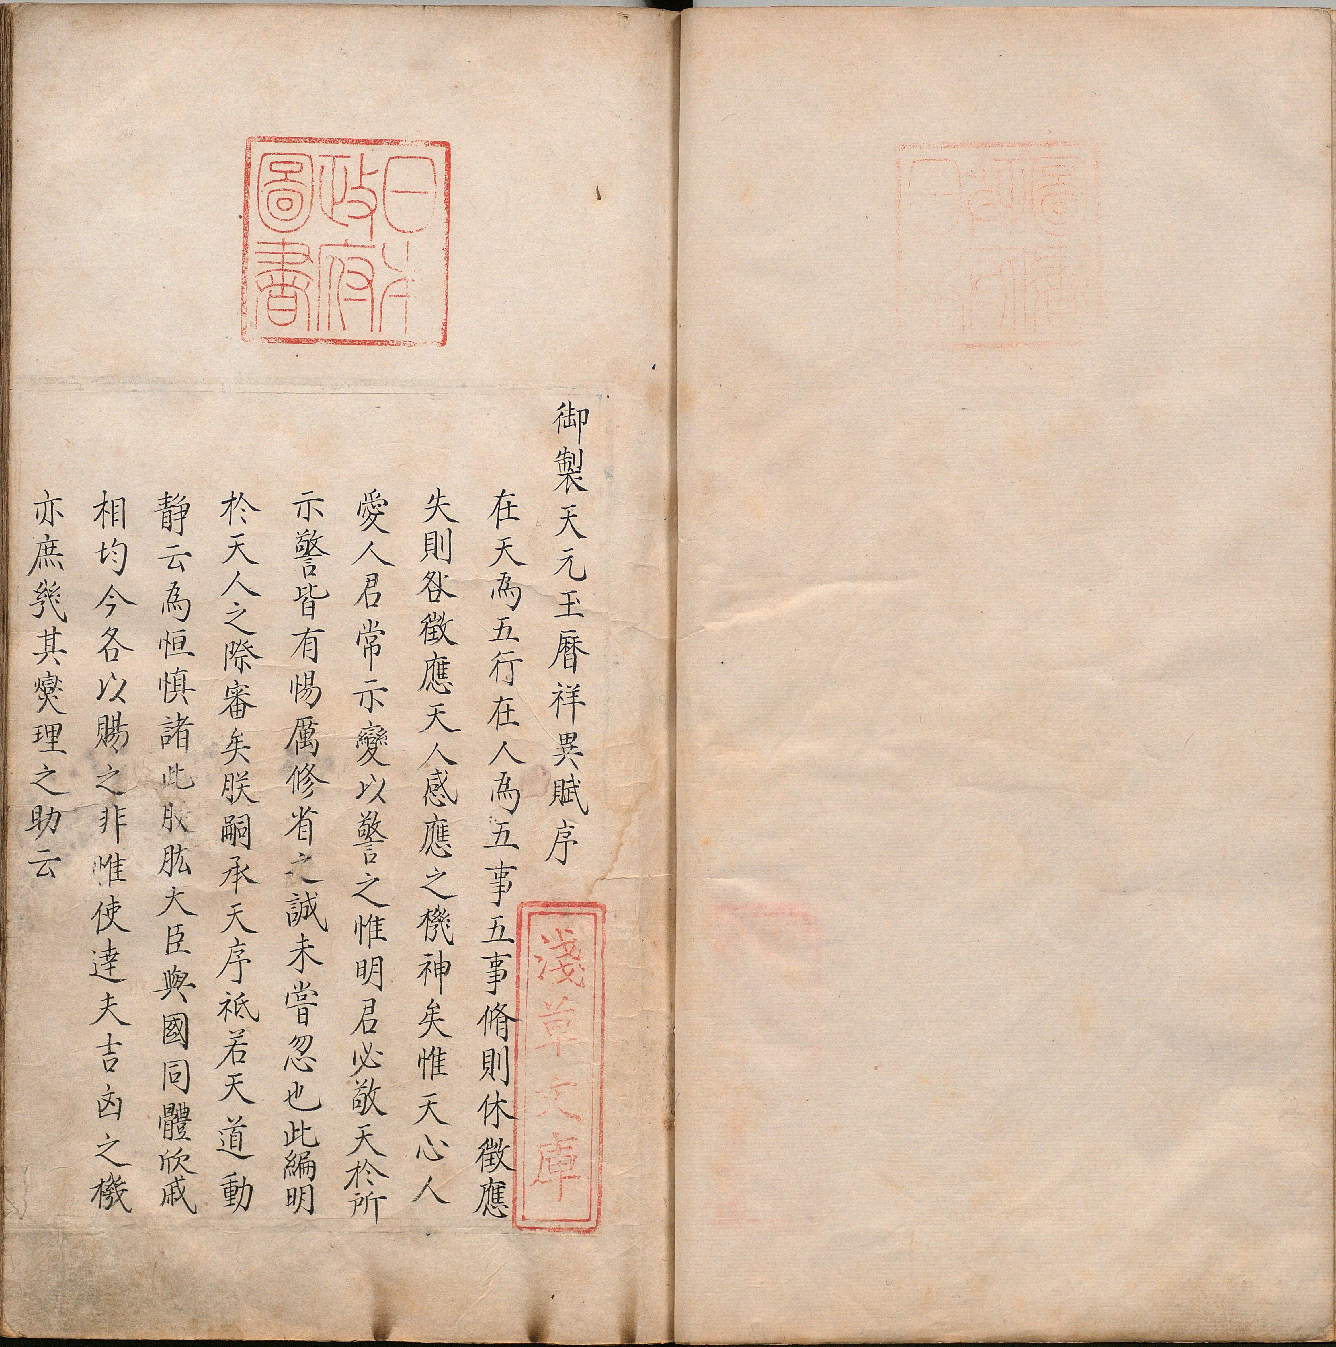 御製天元玉曆祥異賦序
在天為五行在人為五事五事脩則休徵應
失則咎徵應天人感應之機神矣惟天心人
愛人君常示變以警之惟明君必敬天於所
示警皆有惕厲修省之誠未嘗忽也此編明
於天人之際審矣朕嗣承天序祗若天道動
静云為恒慎諸此股肱大臣與國同體欣戚
相均今各以賜之非惟使達夫吉凶之機
亦庶幾其燮理之助云
日本
政府
圖書
淺草文庫